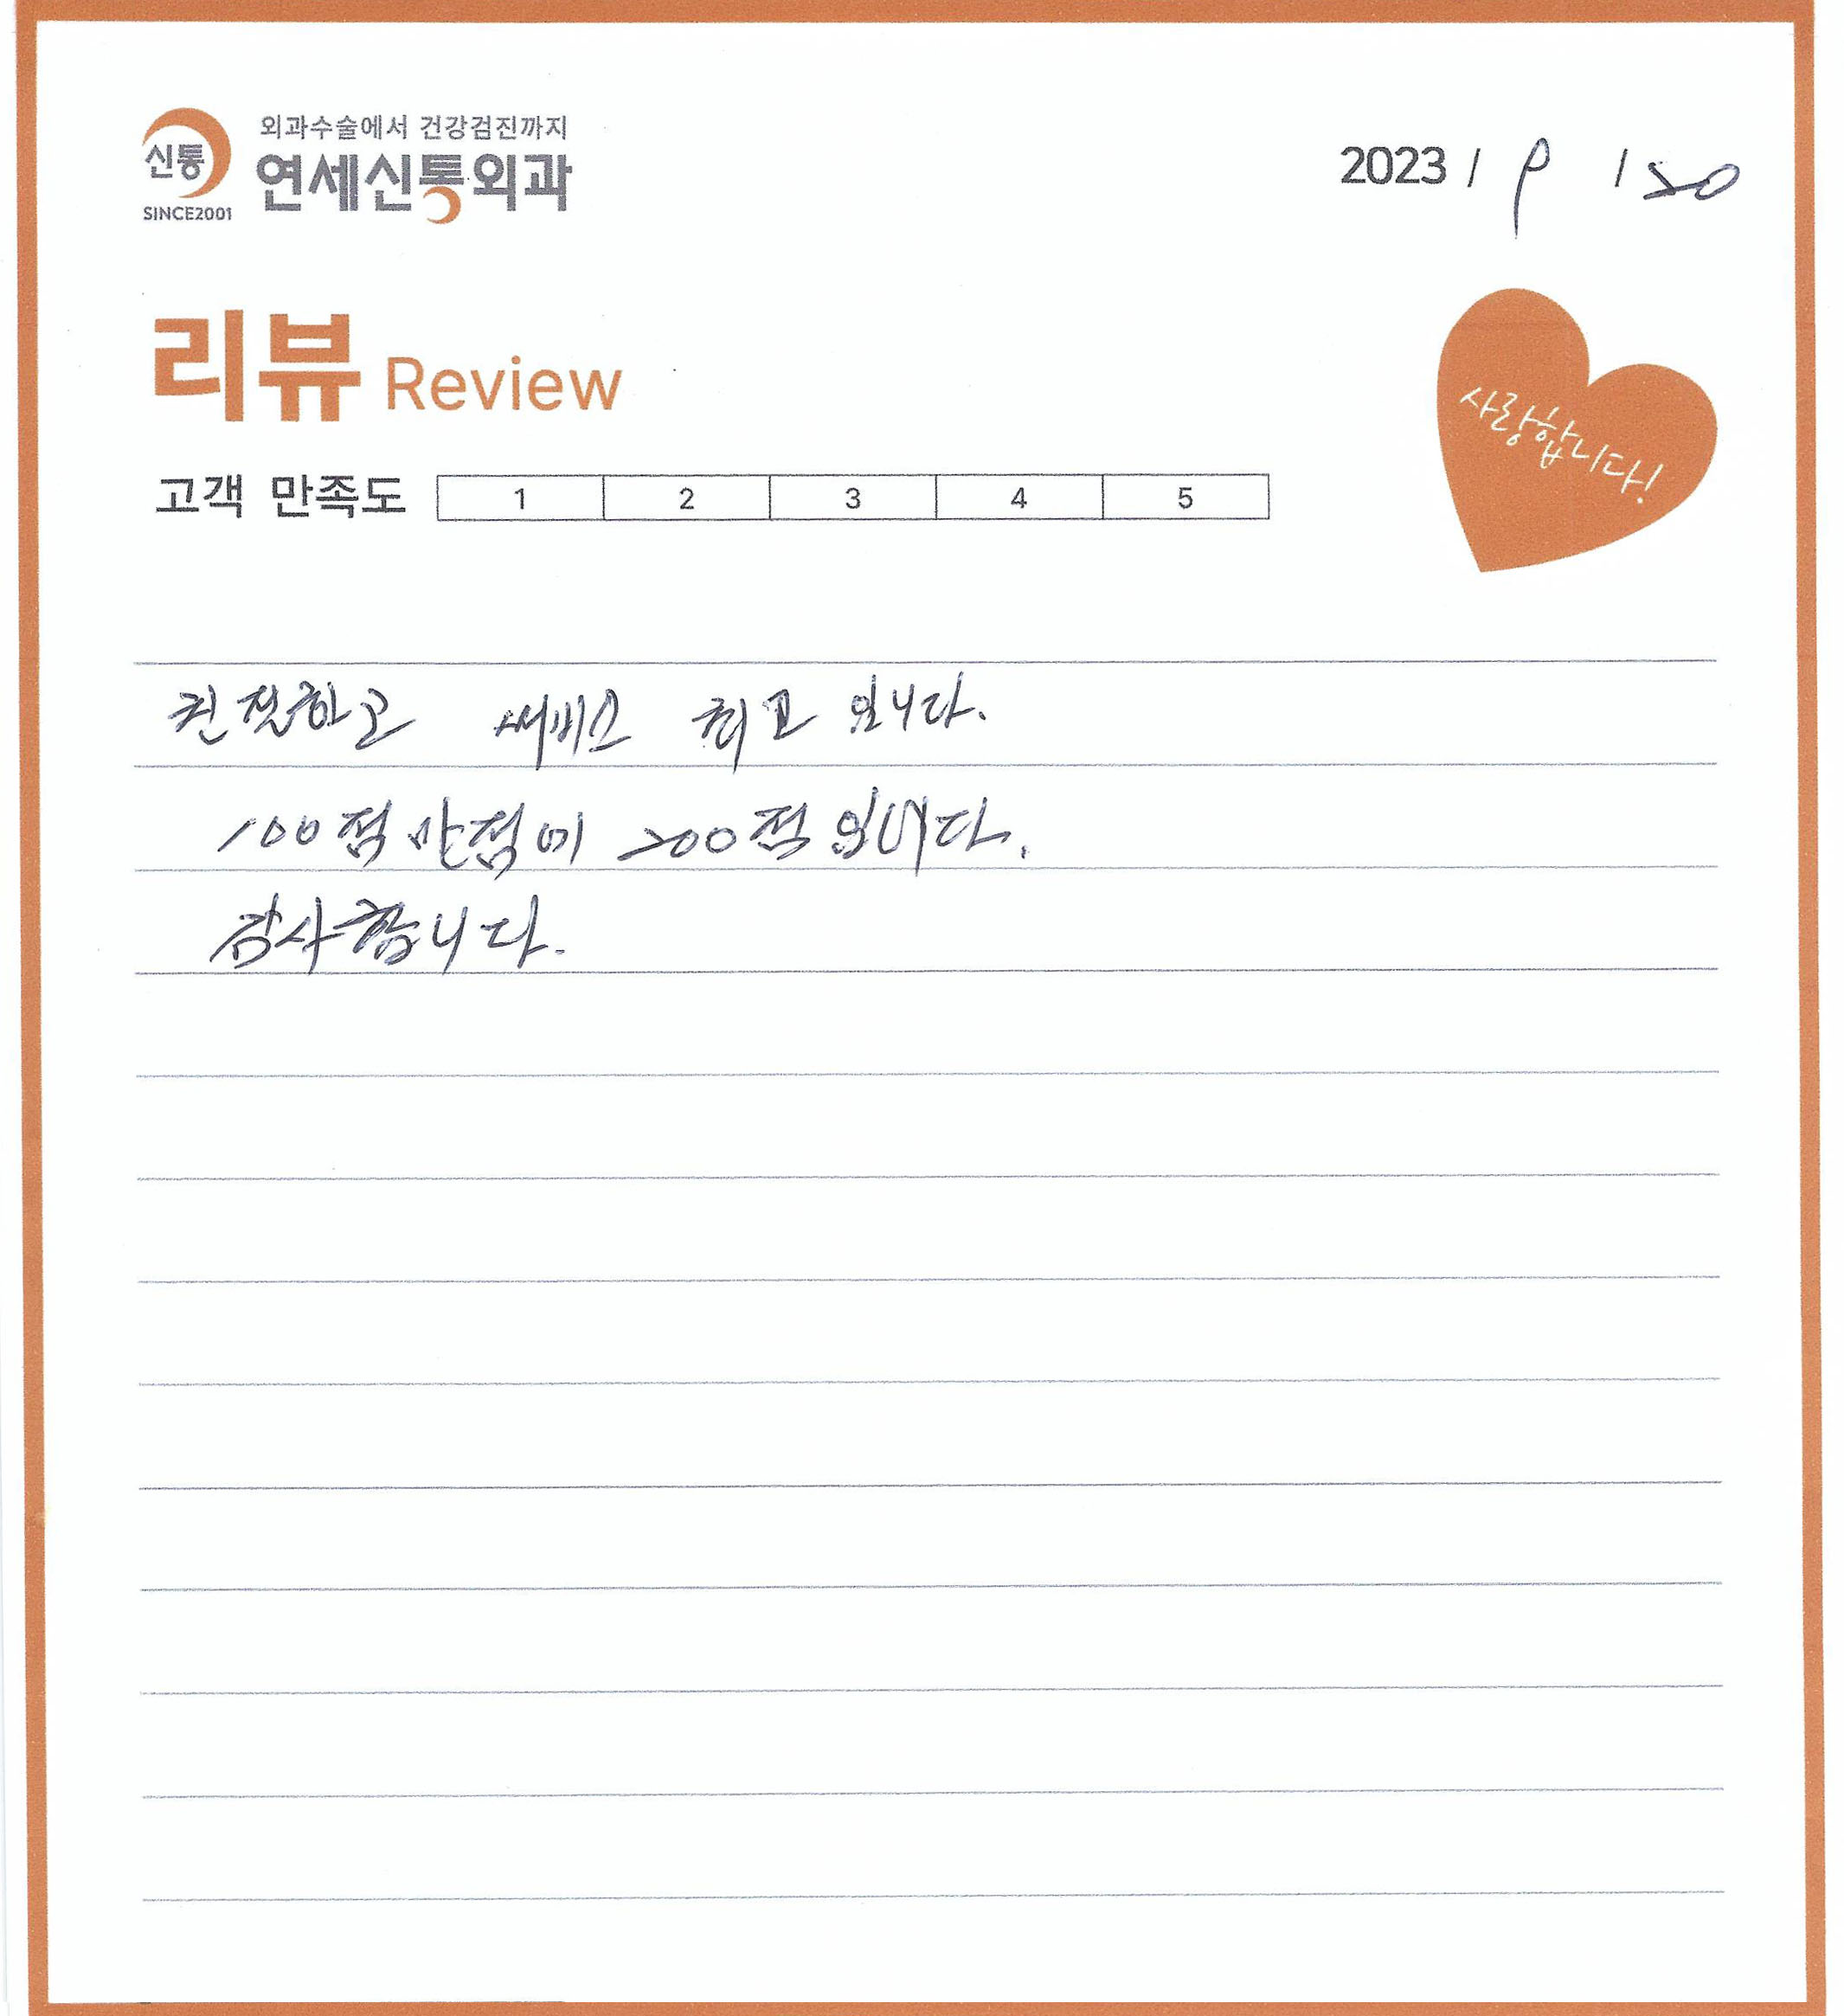 외과수술에서 건강검진까지
신통 연세신통외과
SINCE2001
2023 / 8 / 20
리뷰 Review
사랑합니다!
고객 만족도 1 2 3 4 5
친절하고 써비스 최고 입니다.
100점 만점에 200점 입니다.
감사합니다.